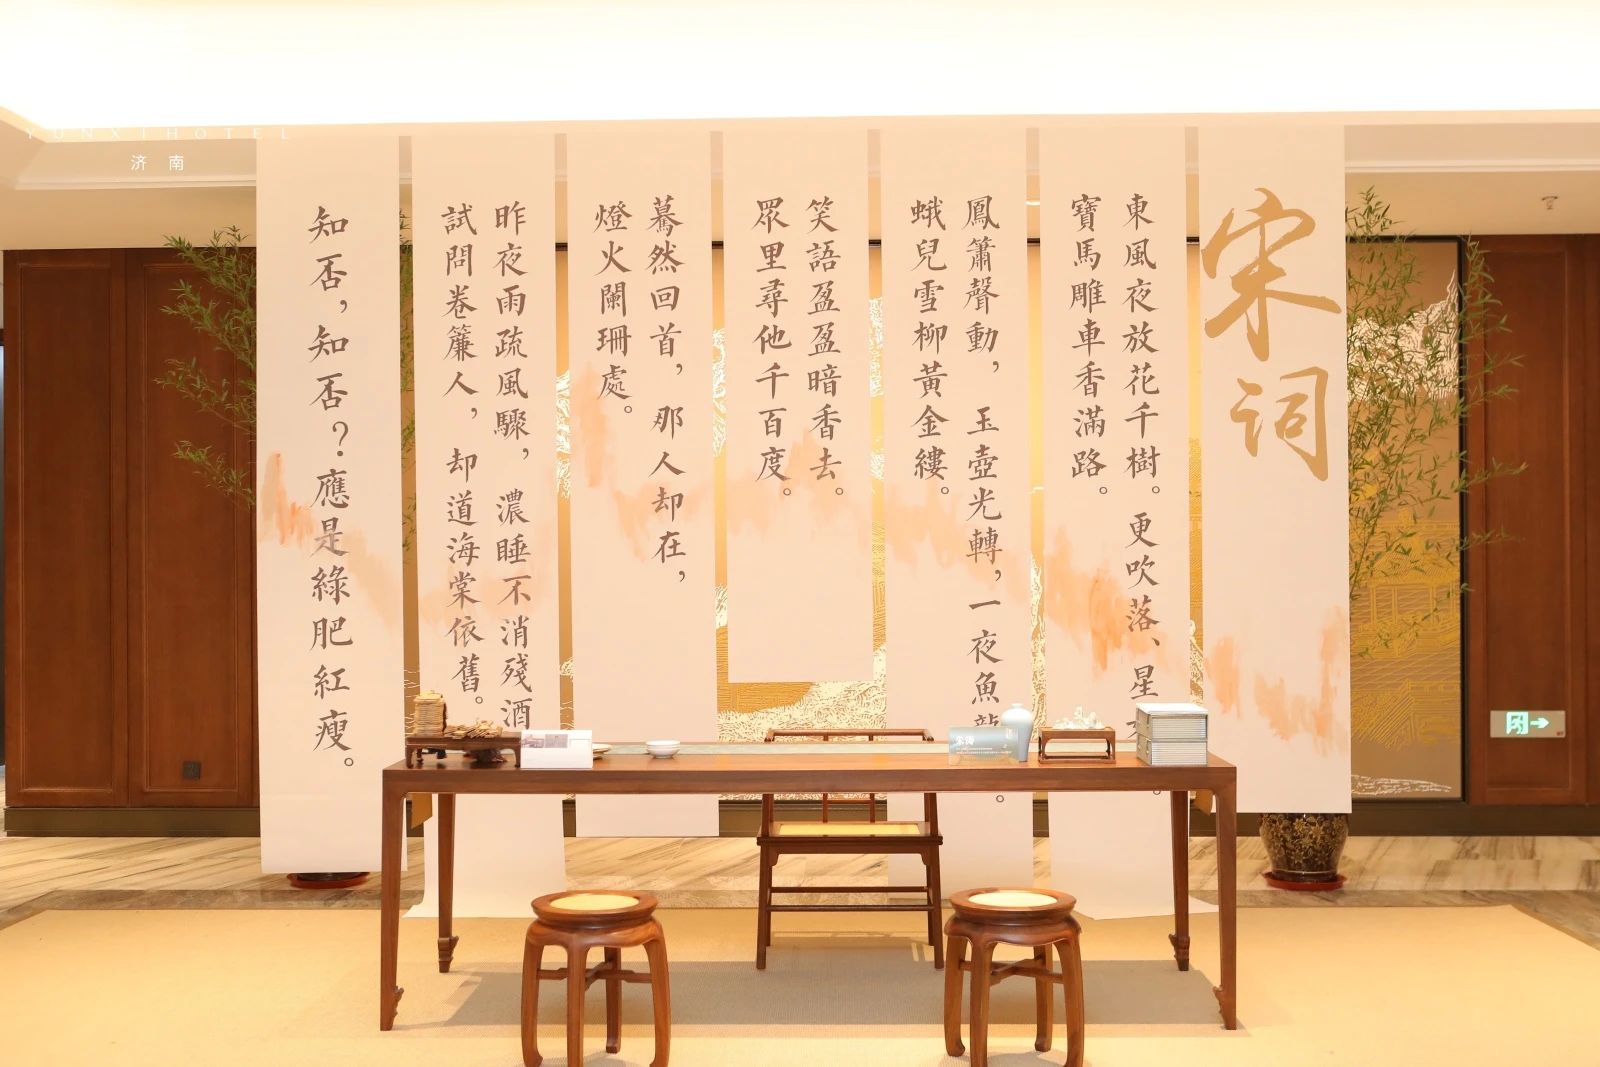 YUNXIHOTEL
济南
宋词
東風夜放花千樹。更吹落、星
寶馬雕車香滿路。
鳳簫聲動，玉壺光轉，一夜魚龍
蛾兒雪柳黃金縷。
笑語盈盈暗香去。
眾里尋他千百度。
驀然回首，那人却在，
燈火闌珊處。
昨夜雨疏風驟，濃睡不消殘酒
試問卷簾人，却道海棠依舊。
知否，知否？應是綠肥紅瘦。